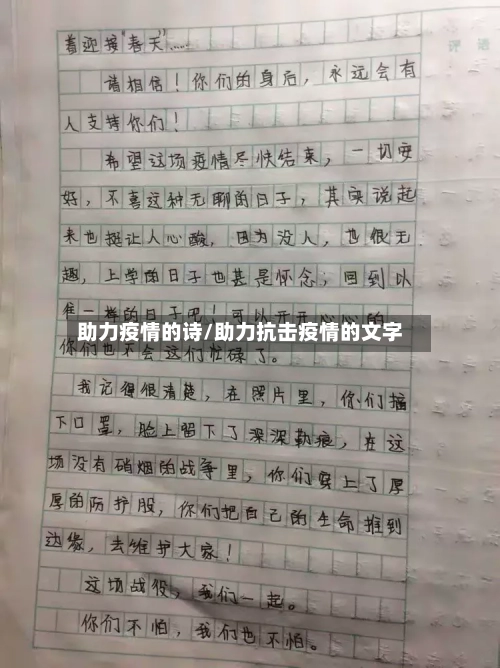 着迎接“春天”......
评语
请相信！你们的身后，永远会有
人支持你们！
希望这场疫情尽快结束，一切安
好，不喜这种无聊的日子，其实说起
来也挺让人心酸，因为没人，也很无
趣，上学的日子也甚是怀念，回到以
一样的日子吧！可以开开心心的
助力疫情的诗/助力抗击疫情的文字
你们也不会这们忙碌了。
我记得很清楚，在照片里，你们摘
下口罩，脸上留下了深深勒痕，在这
场没有硝烟的战争里，你们穿上了厚
厚的防护股，你们把自己的生命推到
边缘，去维护大家！
这场战役，我们一起。
你们不怕，我们也不怕。